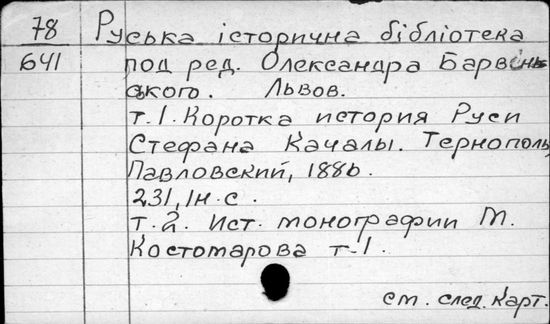 78 Руська історична бібліотека
641 под ред. Олександра Барвінь
ського. Львов.
т.1. Коротка история Руси
Стефана Качалы. Тернополь,
Павловский, 1886.
231, 1н. с.
т. 2. Ист. монографии М.
Костомарова т-1.
см. след. карт.